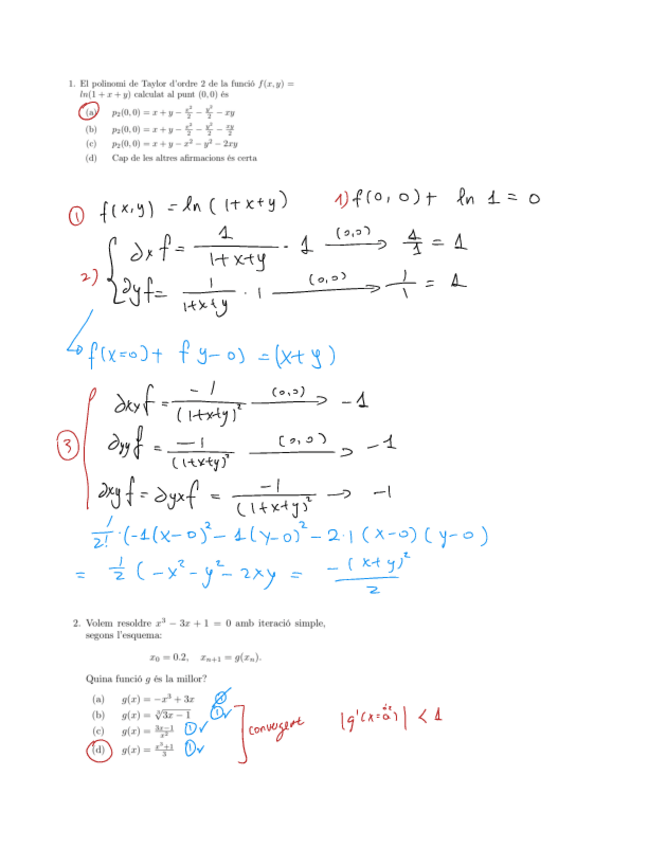 1. El polinomi de Taylor d'ordre 2 de la funció f(x, y) =
ln(1 + x + y) calculat al punt (0, 0) és
(a) p₂(0, 0) = x + y − x²/2 − y²/2 − xy
(b) p₂(0, 0) = x + y − x²/2 − y²/2 − xy/2
(c) p₂(0, 0) = x + y − x² − y² − 2xy
(d) Cap de les altres afirmacions és certa
① f(x,y) = ln(1+x+y) 1) f(0,0)+ ln 1 = 0
∂x f = 1/(1+x+y) · 1 (0,0) → 1/1 = 1
2)
∂y f = 1/(1+x+y) · 1 (0,0) → 1/1 = 1
f(x=0)+ f y-0) = (x+y)
∂xy f = -1/(1+x+y)² (0,0) → -1
③ ∂yy f = -1/(1+x+y)² (0,0) → -1
∂xy f = ∂yx f = -1/(1+x+y)² → -1
1/2! · (-1(x-0)² - 1(y-0)² - 2·1(x-0)(y-0)
= 1/2 (-x² - y² - 2xy = -(x+y)²/2
2. Volem resoldre x³ − 3x + 1 = 0 amb iteració simple,
segons l'esquema:
x₀ = 0.2, xₙ₊₁ = g(xₙ).
Quina funció g és la millor?
(a) g(x) = −x³ + 3x
(b) g(x) = ∛(3x − 1) ① ✓
(c) g(x) = (3x−1)/x² ① ✓ convergent |g'(x=α)| < 1
(d) g(x) = (x³+1)/3 ① ✓